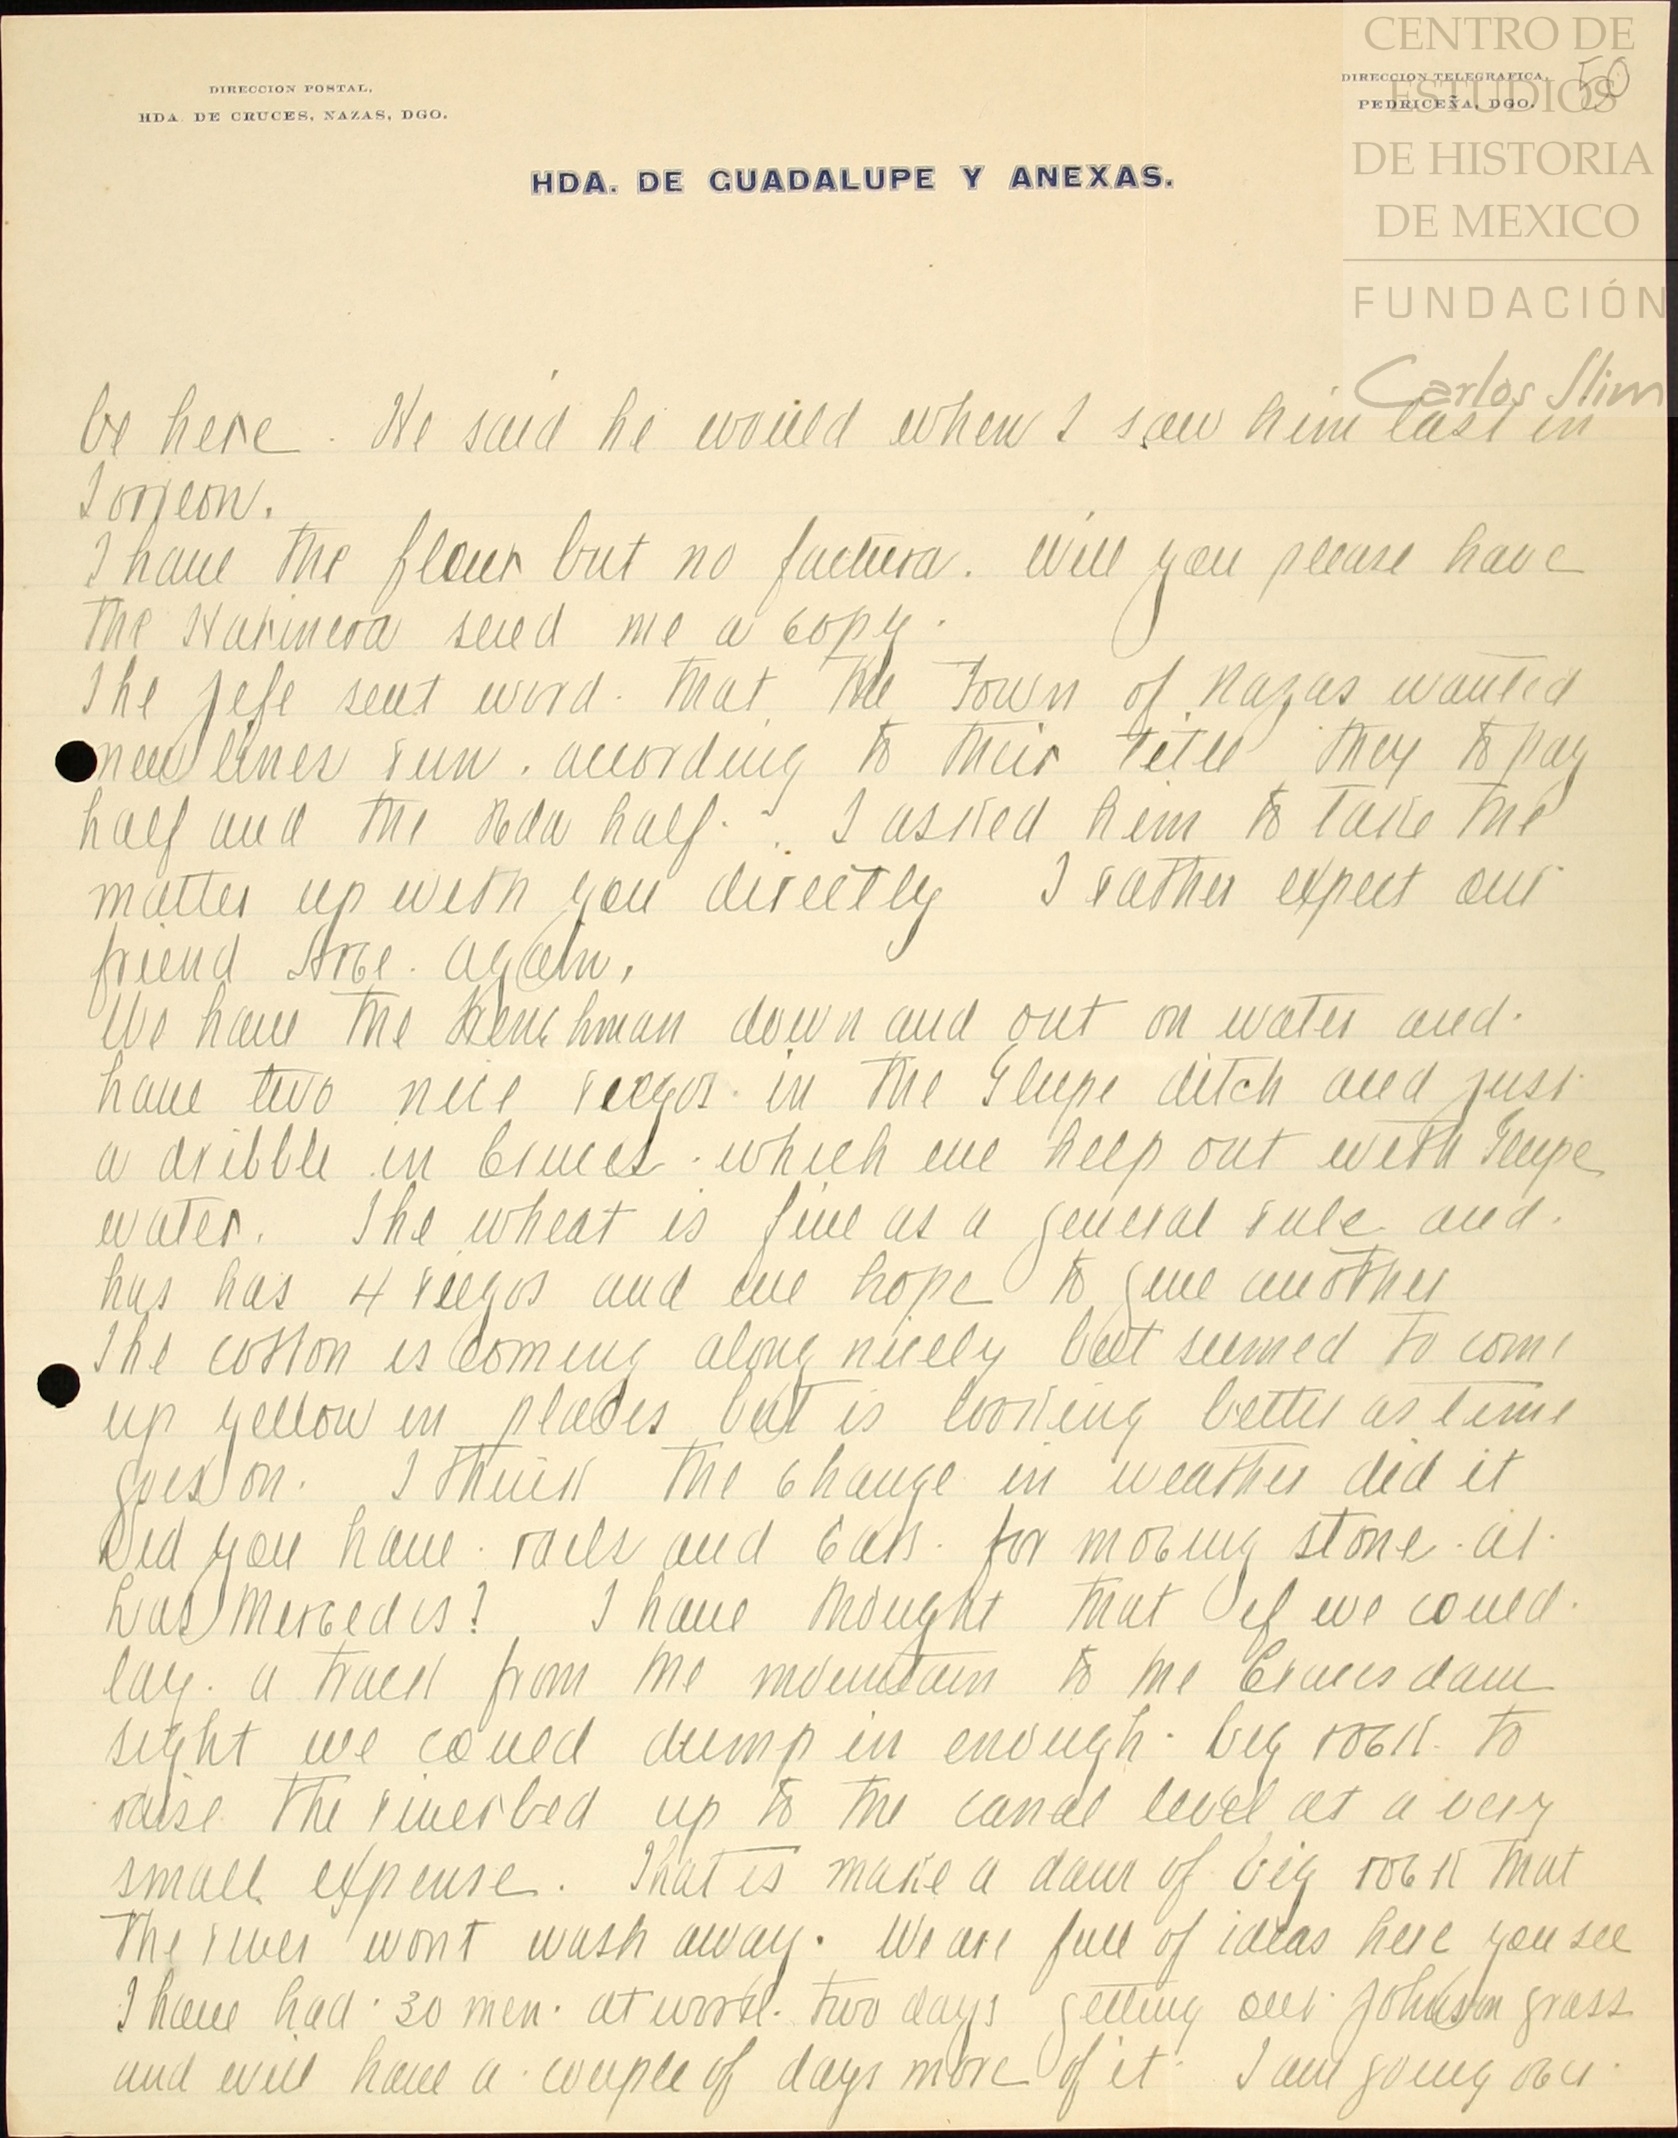 CENTRO DE
ESTUDIOS
DE HISTORIA
DE MEXICO
FUNDACIÓN
Carlos Slim
DIRECCION POSTAL,
HDA. DE CRUCES, NAZAS, DGO.
DIRECCION TELEGRAFICA,
PEDRICEÑA, DGO.
50
HDA. DE GUADALUPE Y ANEXAS.
be here. He said he would when I saw him last in
Torreon.
I have the flour but no factura. Will you please have
the Harinera send me a copy.
The Jefe sent word that the Town of Nazas wanted
new lines run. according to their title they to pay
half and the Hda half. I asked him to take the
matter up with you directly I rather expect our
friend Arce again.
We have the Frenchman down and out on water and
have two nice riegos in the Glupe ditch and just
a dribble in Cruces which we help out with Glupe
water. The wheat is fine as a general rule and
has has 4 riegos and we hope to give another
The cotton is coming along nicely but seemed to come
up yellow in places but is looking better as time
goes on. I think the change in weather did it
Did you have rails and cars for moving stone at
Las Mercedes? I have thought that if we could
lay a track from the mountain to the Cruces dam
sight we could dump in enough big rock to
raise the riverbed up to the canal level at a very
small expense. That is make a dam of big rock that
the river wont wash away. We are full of ideas here you see
I have had 30 men at work two days getting out Johnson grass
and will have a couple of days more of it. I am going over